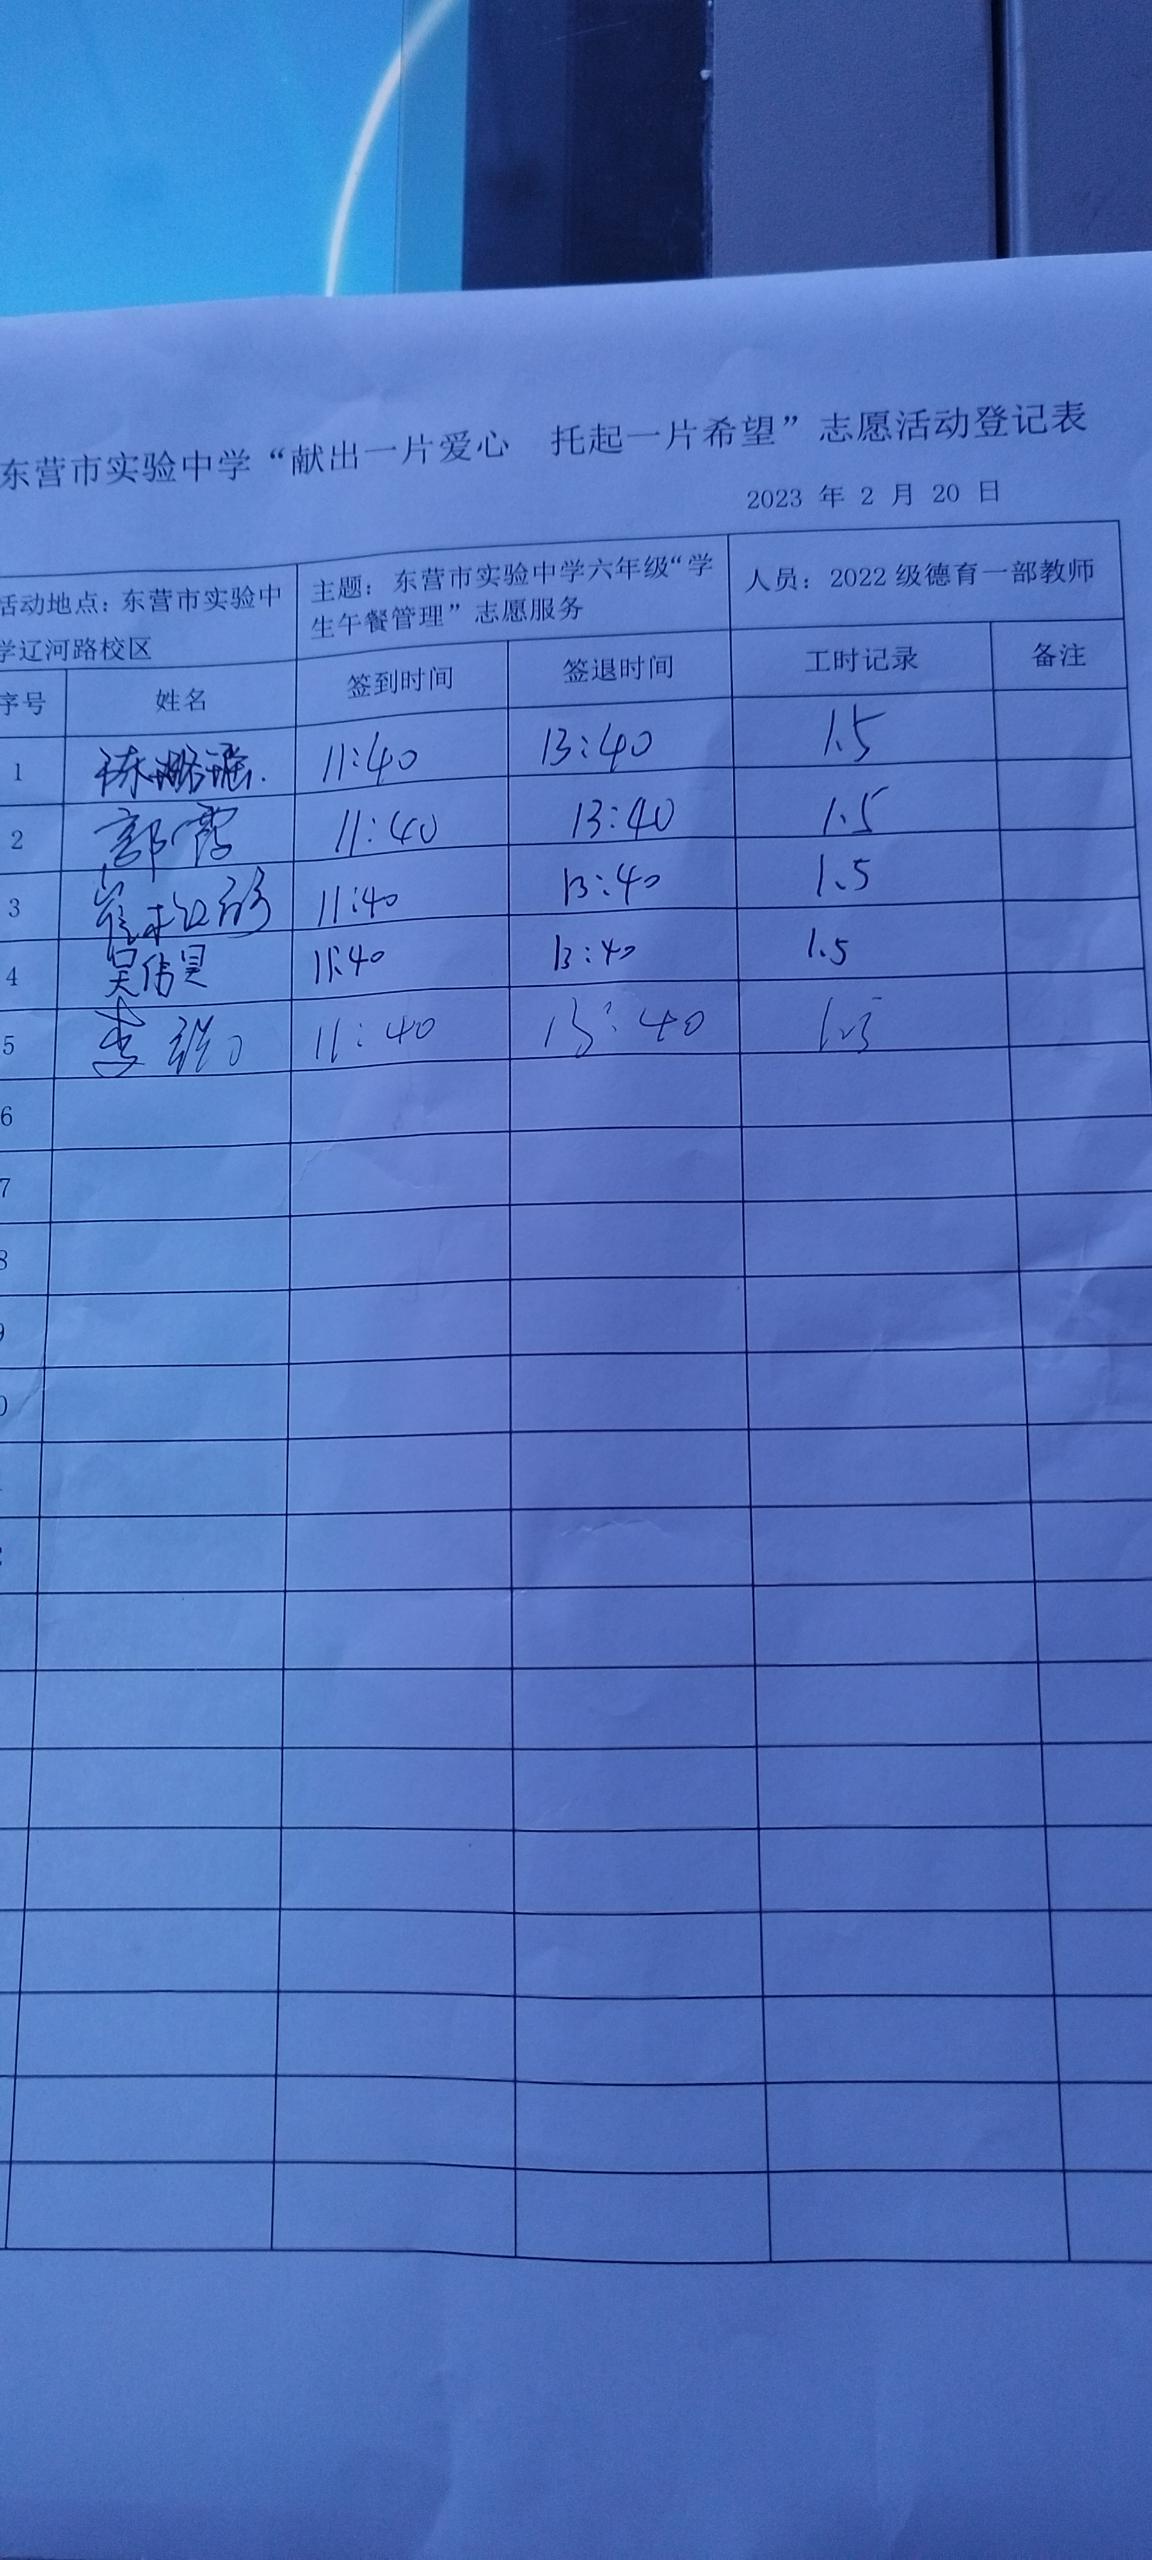 东营市实验中学“献出一片爱心 托起一片希望”志愿活动登记表
2023 年 2 月 20 日
活动地点：东营市实验中
学辽河路校区
主题：东营市实验中学六年级“学
生午餐管理”志愿服务
人员：2022 级德育一部教师
序号 姓名 签到时间 签退时间 工时记录 备注
1 陈 11:40 13:40 1.5
2 郭霞 11:40 13:40 1.5
3 崔 11:40 13:40 1.5
4 吴伟昊 11:40 13:40 1.5
5 李 11:40 13:40 1.5
6
7
8
9